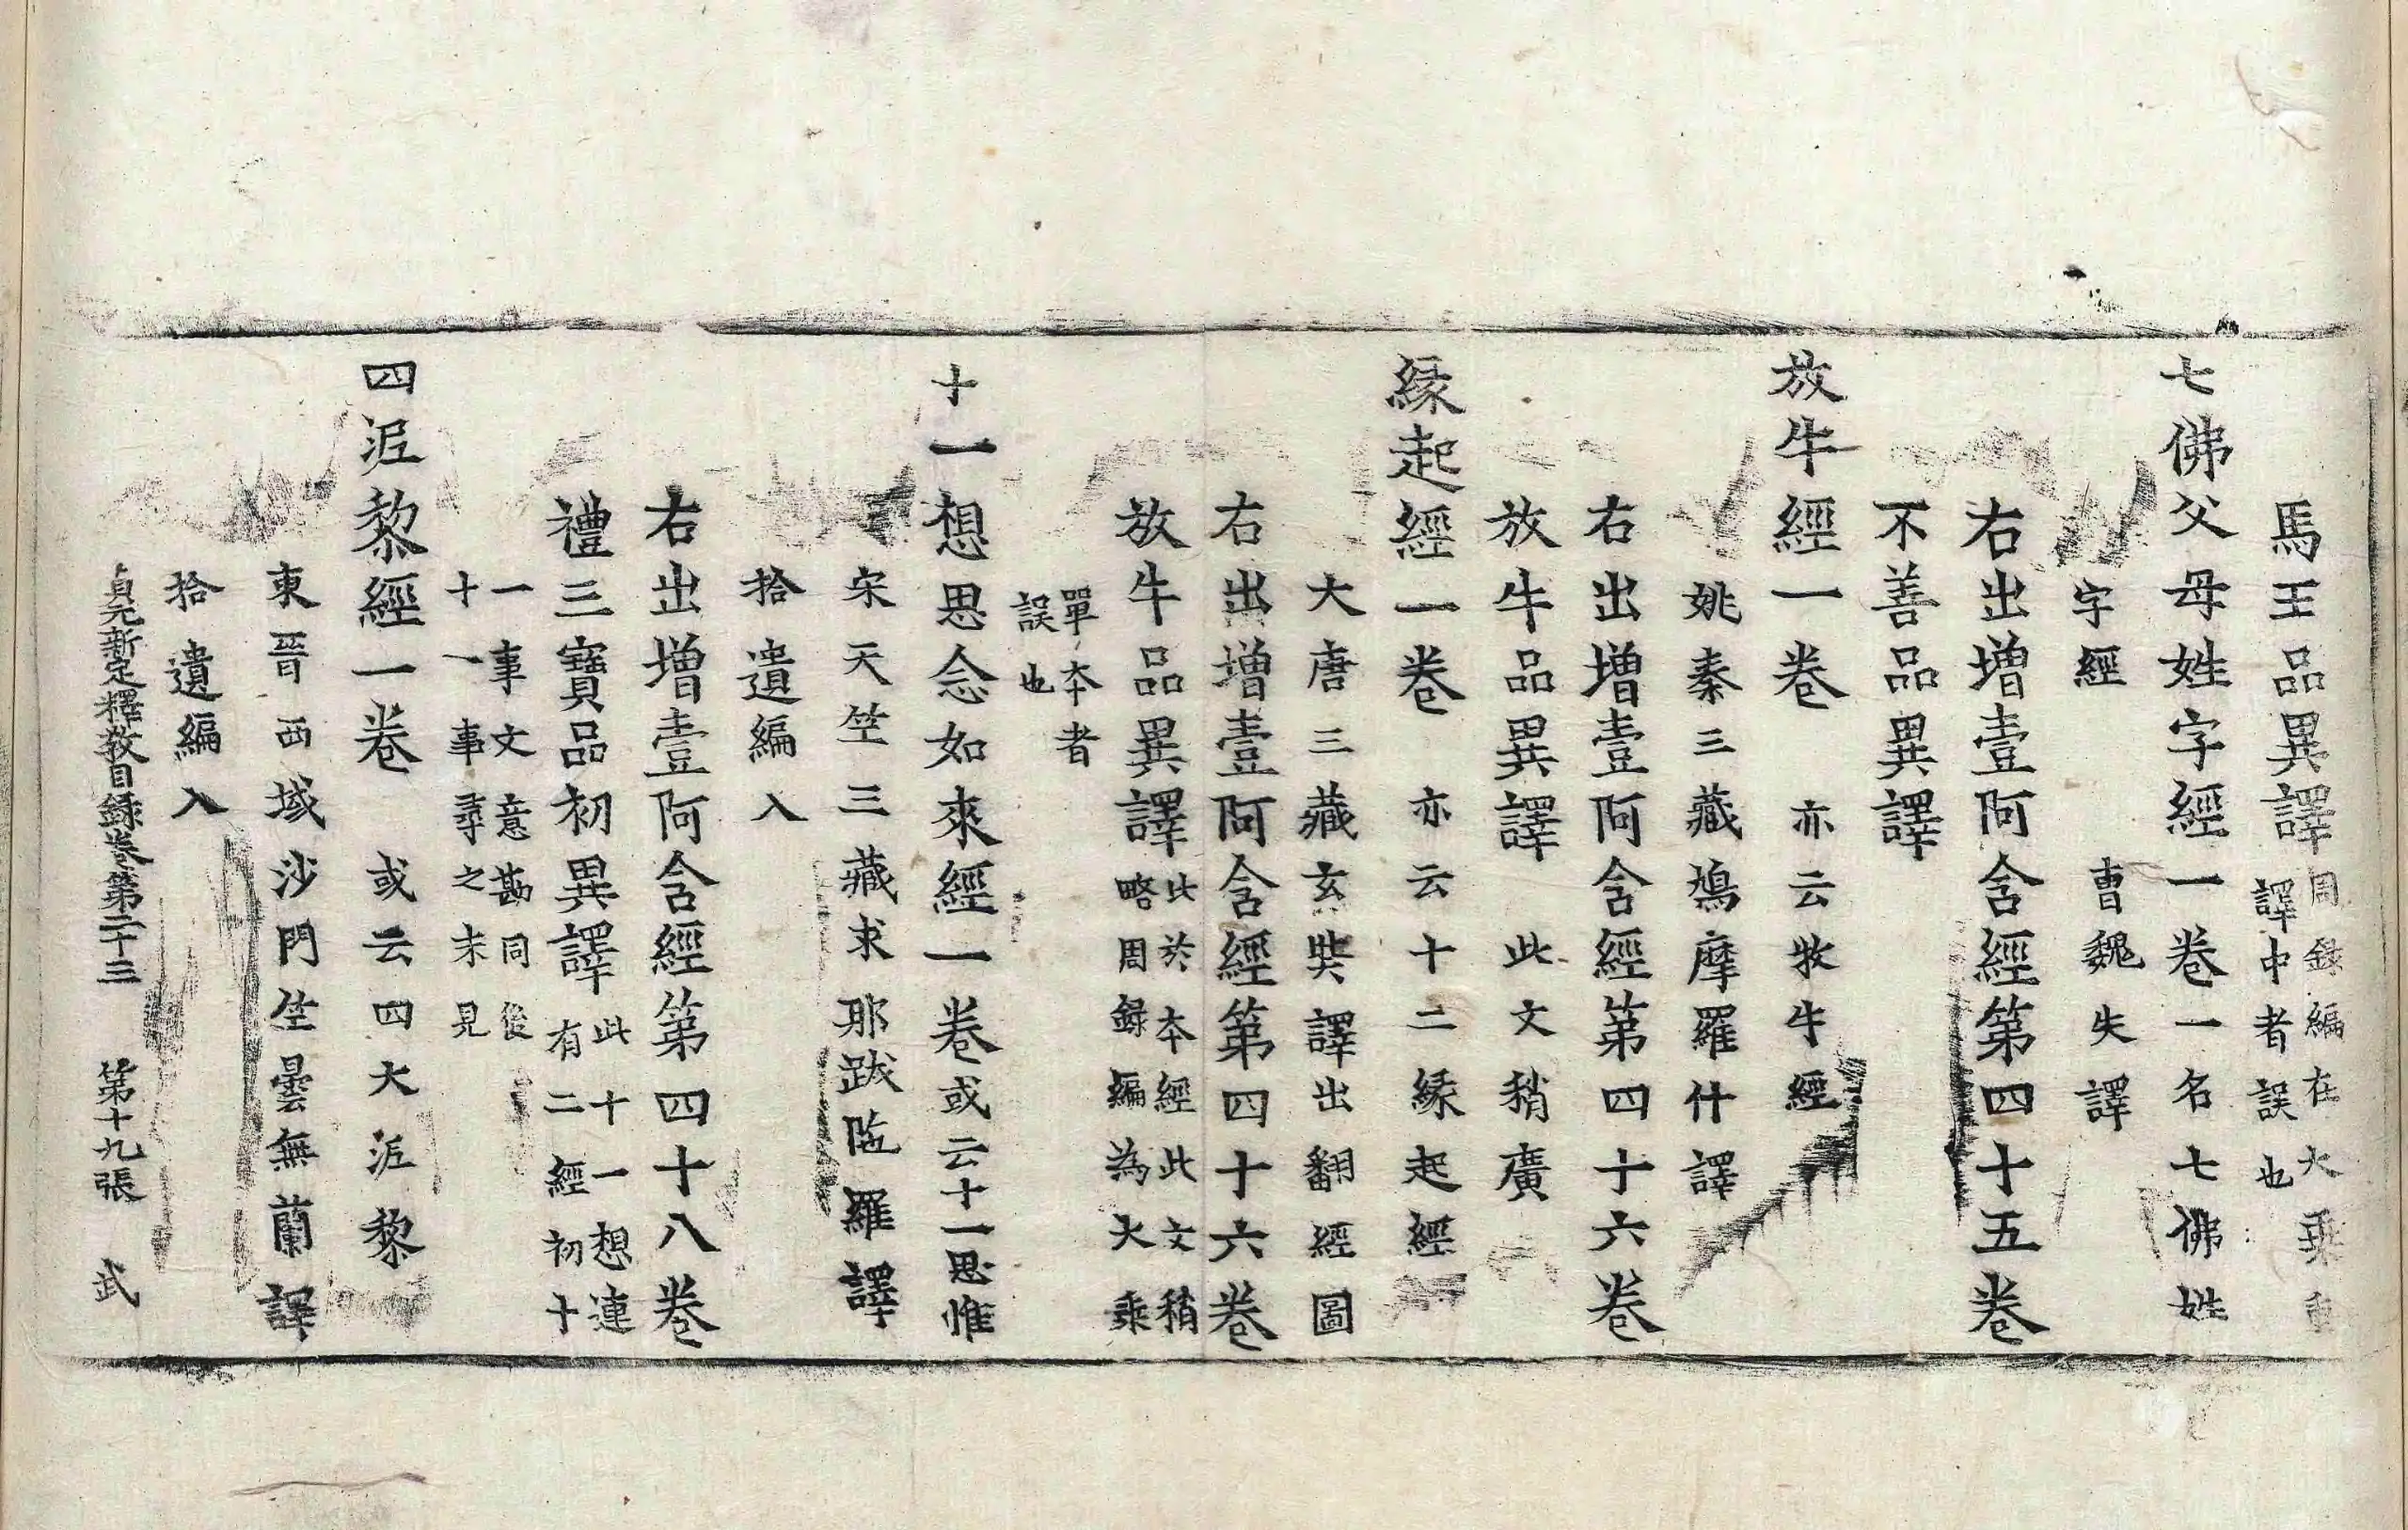 馬王品異譯周録編在大乗重
譯中者誤也
七佛父母姓字經一卷一名七佛姓
字經 曹魏失譯
右出増壹阿含經第四十五卷
不善品異譯
放牛經一卷 亦云牧牛經
姚秦三藏鳩摩羅什譯
右出増壹阿含經第四十六卷
放牛品異譯 此文稍廣
縁起經一卷 亦云十二縁起經
大唐三藏玄奘譯出翻經圖
右出増壹阿含經第四十六卷
放牛品異譯此於本經此文稍
略周録編為大乗
單本者
誤也
十一想思念如來經一卷或云十一思惟
宋天竺三藏求那跋陁羅譯
拾遺編入
右出増壹阿含經第四十八卷
禮三寶品初異譯此十一想連
有二經初十
一事文意勘同後
十一事尋之未見
四泥黎經一卷 或云四大泥黎
東晉西域沙門竺曇無蘭譯
拾遺編入
貞元新定釋教目録卷第二十三 第十九張 武